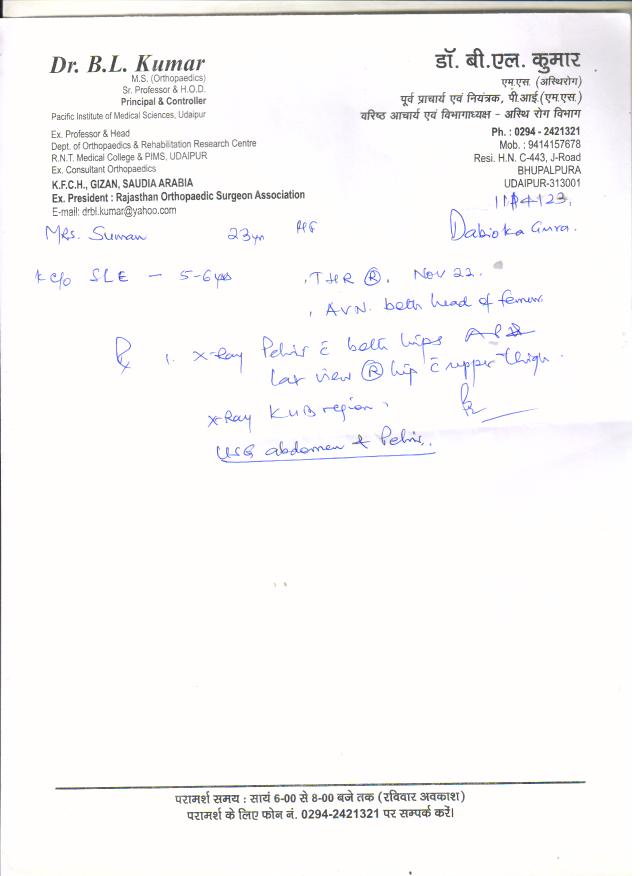 Dr. B.L. Kumar
M.S. (Orthopaedics)
Sr. Professor & H.O.D.
Principal & Controller
Pacific Institute of Medical Sciences, Udaipur
Ex. Professor & Head
Dept. of Orthopaedics & Rehabilitation Research Centre
R.N.T. Medical College & PIMS, UDAIPUR
Ex. Consultant Orthopaedics
K.F.C.H., GIZAN, SAUDIA ARABIA
Ex. President : Rajasthan Orthopaedic Surgeon Association
E-mail: drbl.kumar@yahoo.com
डॉ. बी.एल. कुमार
एम.एस. (अस्थिरोग)
पूर्व प्राचार्य एवं नियंत्रक, पी.आई.(एम.एस.)
वरिष्ठ आचार्य एवं विभागाध्यक्ष - अस्थि रोग विभाग
Ph. : 0294 - 2421321
Mob. : 9414157678
Resi. H.N. C-443, J-Road
BHUPALPURA
UDAIPUR-313001
Mrs. Suman 23yr
Dabioka Gura.
K c/o SLE - 5-6 yrs
THR Ⓡ. Nov 22.
AVN. both head of femur.
℞ 1. X-Ray Pelvis c̄ both hips
Lat view Ⓡ hip c̄ upper thigh.
X-Ray KUB region.
USG abdomen & Pelvis.
परामर्श समय : सायं 6-00 से 8-00 बजे तक (रविवार अवकाश)
परामर्श के लिए फोन नं. 0294-2421321 पर सम्पर्क करें।